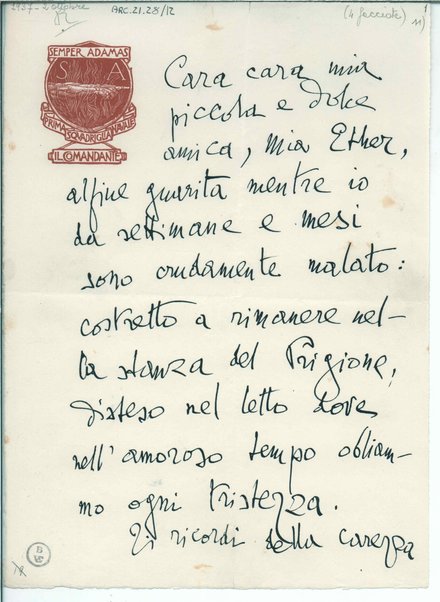 1937 - 2 ottobre
ARC.21.28/12
(4 facciate)
SEMPER ADAMAS
S A
PRIMA SQUADRIGLIA NAVALE
IL COMANDANTE
Cara cara mia
piccola e dolce
amica, mia Esther,
alfine guarita mentre io
da settimane e mesi
sono crudamente malato:
costretto a rimanere nel-
la stanza del Prigione,
disteso nel letto dove
nell'amoroso tempo obliam-
mo ogni tristezza.
Ti ricordi della carezza